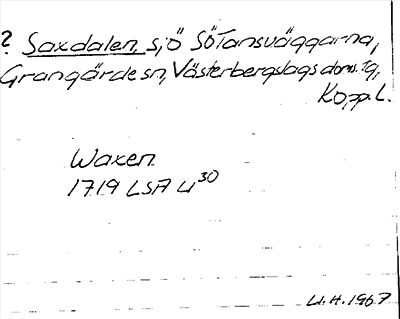 ? Saxdalen, sjö SöTansväggarna,
Grangärde sn, Västerbergslags doms. Tg,
Kopp. L.
Waxen
1719 LSA U30
U.H. 1967